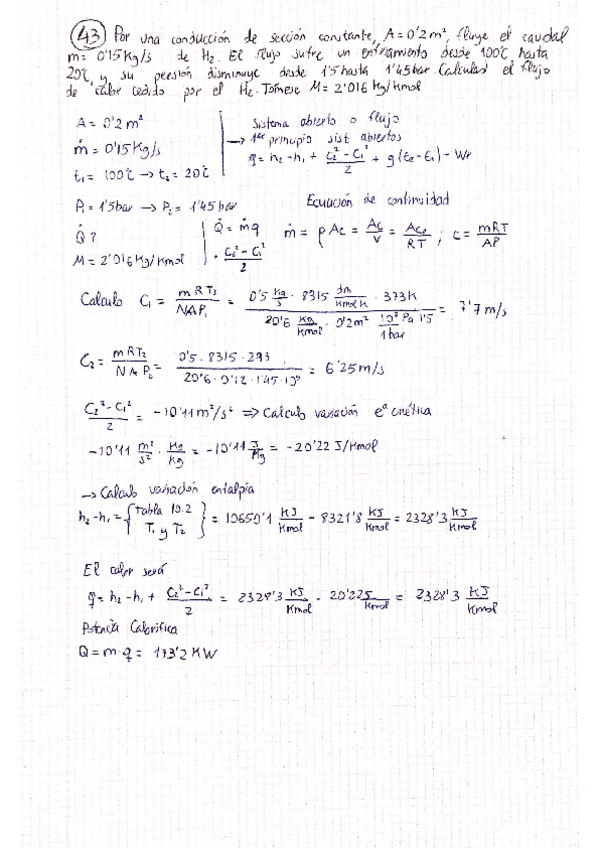 43 Por una conducción de sección constante, A=0'2 m², fluye el caudal
m= 0'15 Kg/s de H₂. El flujo sufre un enfriamiento desde 100°C hasta
20°C y su persión disminuye desde 1'5 hasta 1'45 bar. Calculad el flujo
de calor cedido por el H₂. Tómese M= 2'016 Kg/Kmol
A= 0'2 m²
ṁ= 0'15 Kg/s
t₁= 100°C → t₂= 20°C
Sistema abierto o flujo
→ 1er principio sist abiertos
q= h₂-h₁ + (C₂²-C₁²)/2 + g(z₂-z₁) - Wt
P₁= 1'5bar → P₂= 1'45bar
Q̇?
M= 2'016 Kg/Kmol
Q̇= ṁq
· (C₂²-C₁²)/2
Ecuación de continuidad
ṁ= ρAc = Ac/v = Acp/RT ; c= mRT/AP
Calculo C₁ = mRT₁/NAP₁ = (0'5 Kg/s · 8315 Jm/Kmol K · 373K)/(20'6 Kg/Kmol · 0'2m² · 10⁵ Pa 1'5/1bar) = 7'7 m/s
C₂= mRT₂/NAP₂ = (0'5 · 8315 · 293)/(20'6 · 0'12 · 1'45 · 10⁵) = 6'25 m/s
(C₂²-C₁²)/2 = -10'11 m²/s² ⇒ Calculo variación eᵃ cinética
-10'11 m²/s² · Kg/Kg = -10'11 J/Kg = -20'22 J/Kmol
→ Calculo variación entalpía
h₂-h₁= { tabla 10.2 T₁ y T₂ } = 10650'1 KJ/Kmol - 8321'8 KJ/Kmol = 2328'3 KJ/Kmol
El calor será
q= h₂-h₁ + (C₂²-C₁²)/2 = 2328'3 KJ/Kmol · 20'22J/Kmol = 2328'3 KJ/Kmol
Potencia Calorífica
Q= m·q = 173'2 KW